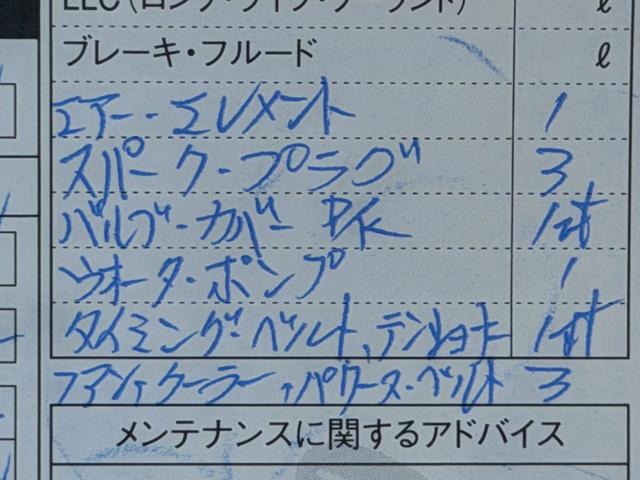 LLC(ロング・ライフ・クーラント) ℓ
ブレーキ・フルード ℓ
エアー・エレメント 1
スパーク・プラグ 3
バルブ・カバー P/K 1set
ウォータ・ポンプ 1
タイミング・ベルト、テンショナー 1set
ファン、クーラー、パワース・ベルト 3
メンテナンスに関するアドバイス